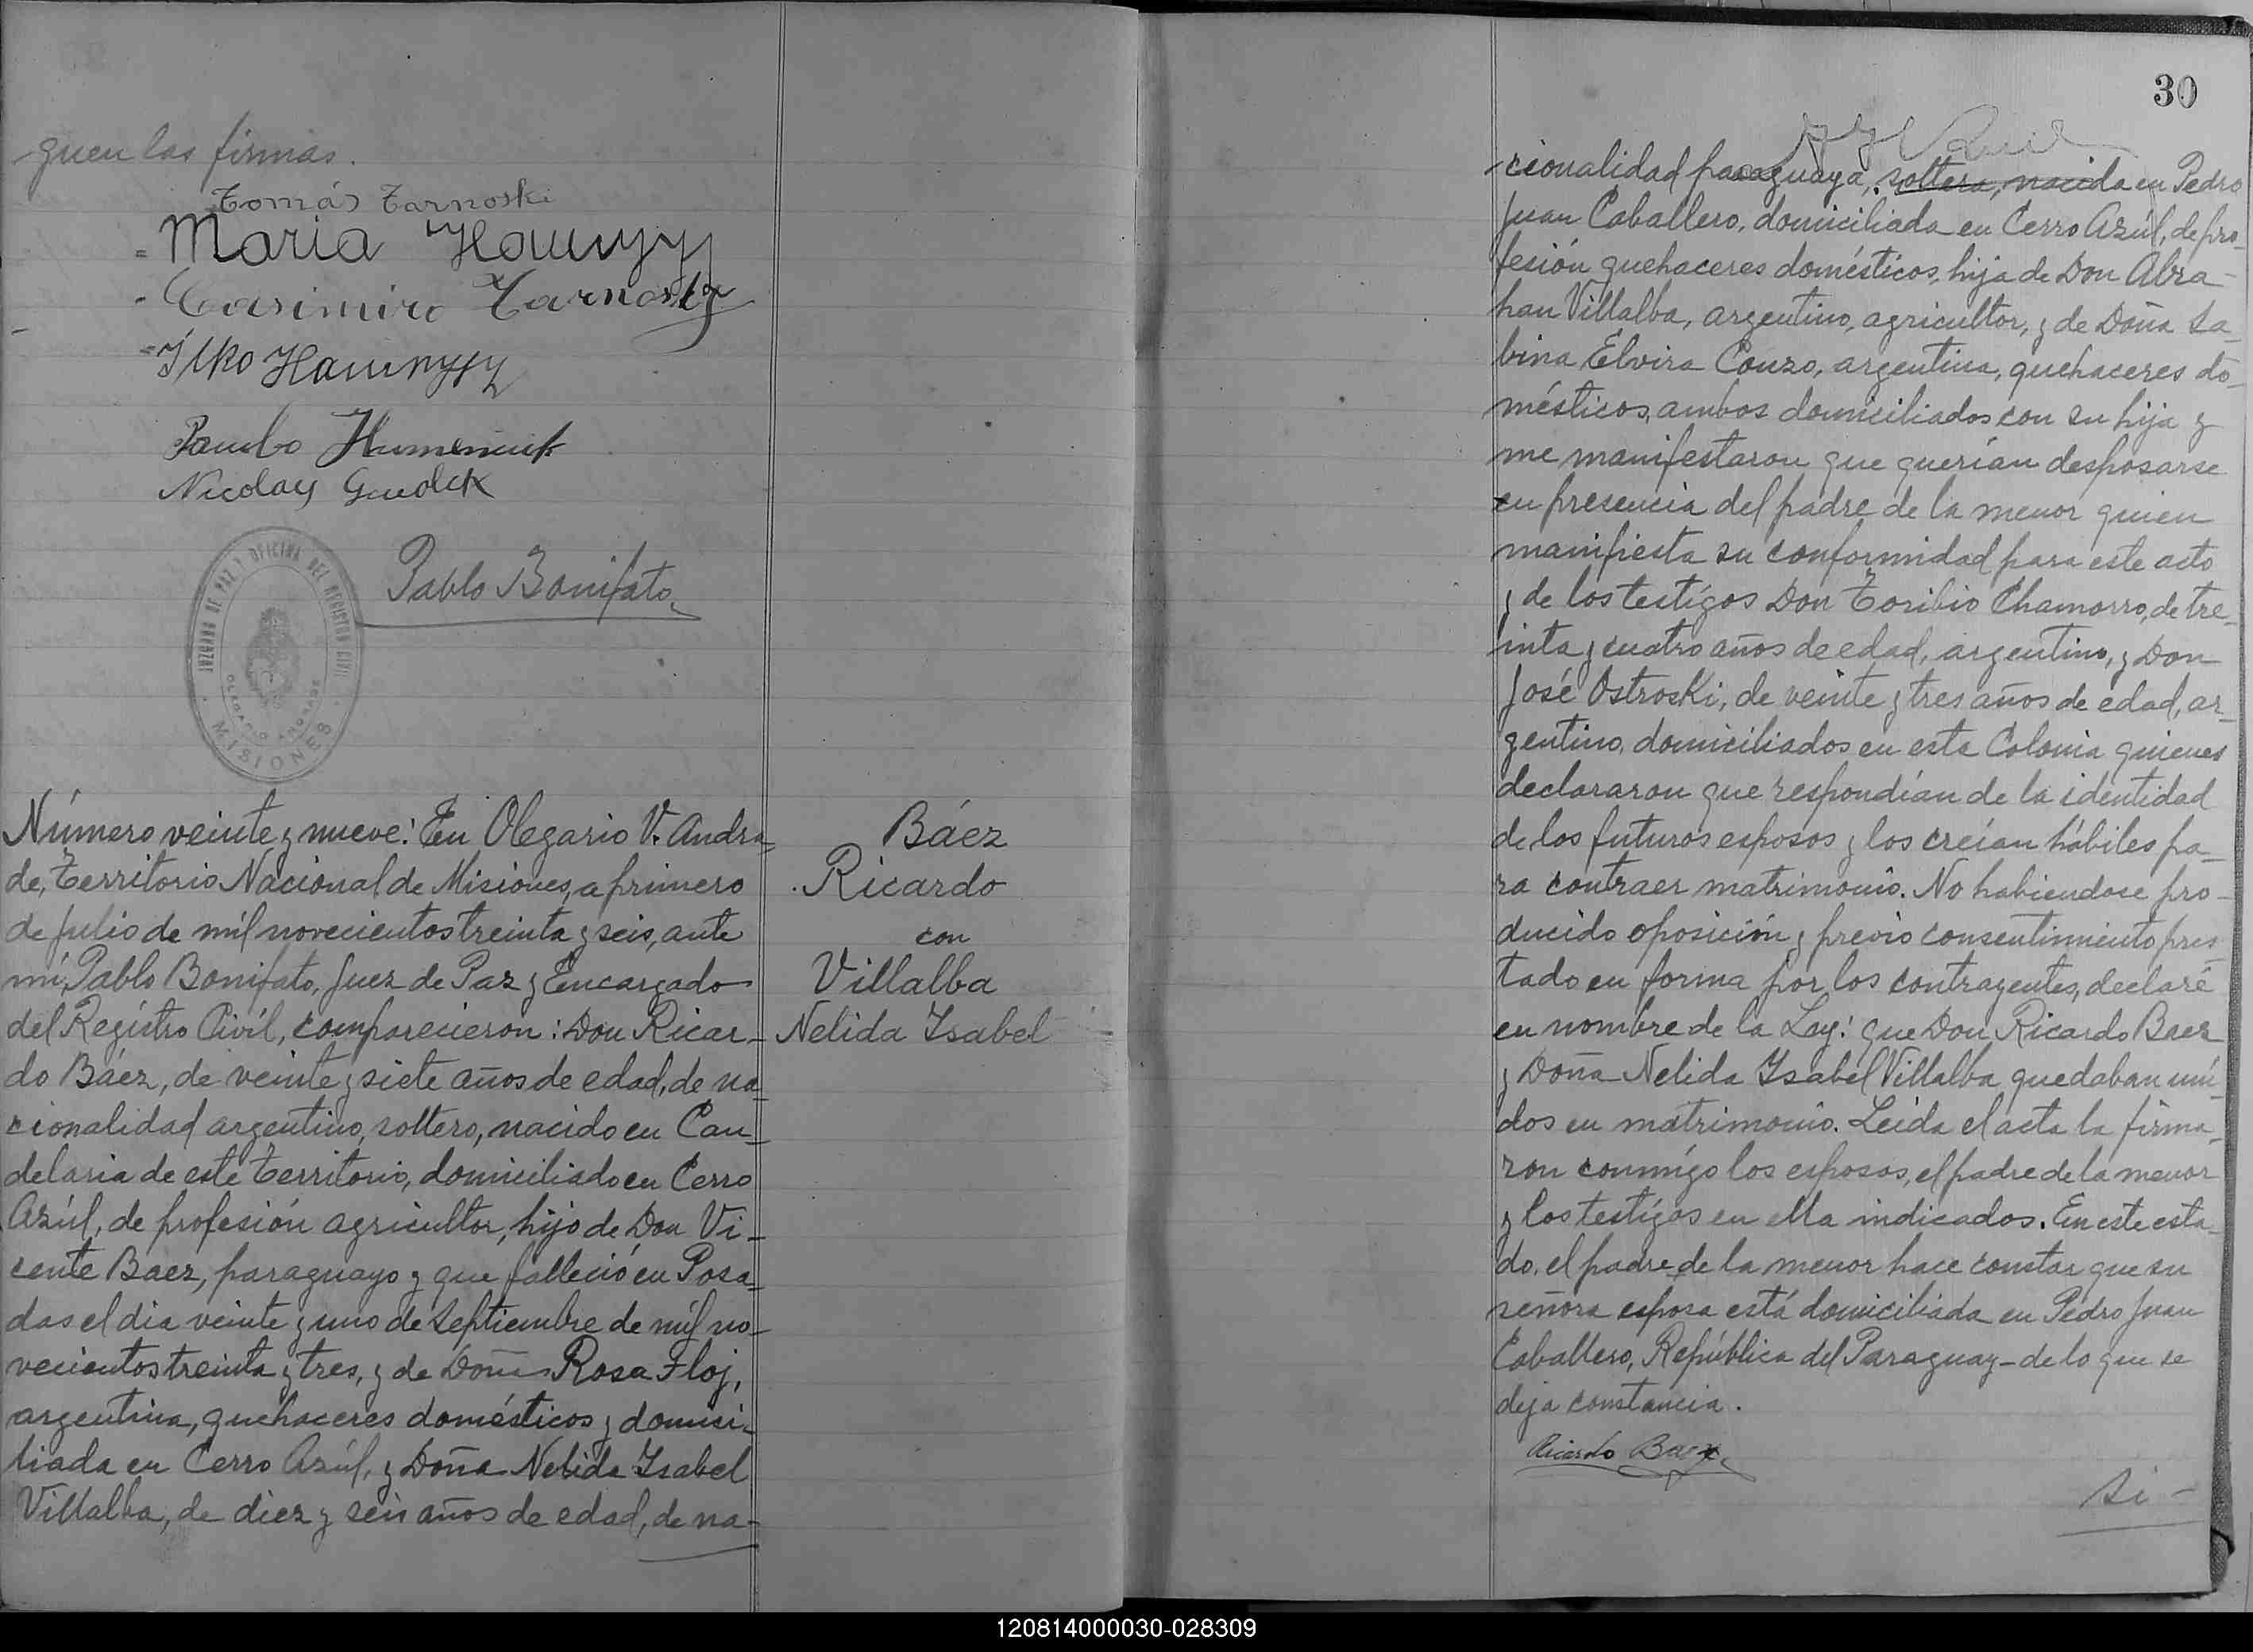 guen las firmas.
Tomás Tarnoski
Maria
Casimiro Tarnosky
Ilko
Pambo Humeniuk
Nicolay
Pablo Bonifato
JUZGADO DE PAZ Y OFICINA DEL REGISTRO CIVIL
OLEGARIO ANDRADE
MISIONES
Número veinte y nueve: En Olegario V. Andra_
de, Territorio Nacional de Misiones, a primero
de julio de mil novecientos treinta y seis, ante
mi, Pablo Bonifato, Juez de Paz y Encargado
del Registro Civil, comparecieron: Don Ricar_
do Báez, de veinte y siete años de edad, de na_
cionalidad argentino, soltero, nacido en Can_
delaria de este territorio, domiciliado en Cerro
Azúl, de profesión agricultor, hijo de Don Vi_
cente Baez, paraguayo y que falleció en Posa_
das el dia veinte y uno de Septiembre de mil no_
vecientos treinta y tres, y de Doña Rosa Floj,
argentina, quehaceres domésticos y domici_
liada en Cerro Azúl, y Doña Nelida Isabel
Villalba, de diez y seis años de edad, de na-
Báez
Ricardo
con
Villalba
Nelida Isabel
30
cionalidad paraguaya, soltera, nacida en Pedro
Juan Caballero, domiciliada en Cerro Azúl, de pro_
fesión quehaceres domésticos, hija de Don Abra_
han Villalba, argentino, agricultor, y de Doña Sa_
bina Elvira Couzo, argentina, quehaceres do_
mésticos, ambos domiciliados con su hija y
me manifestaron que querían desposarse
en presencia del padre de la menor quien
manifiesta su conformidad para este acto
y de los testigos Don Toribio Chamorro, de tre_
inta y cuatro años de edad, argentino, y Don
José Ostroski, de veinte y tres años de edad, ar_
gentino, domiciliados en esta Colonia quienes
declararon que respondían de la identidad
de los futuros esposos y los creían hábiles pa_
ra contraer matrimonio. No habiendose pro_
ducido oposición y previo consentimiento pres_
tado en forma por los contrayentes, declaré
en nombre de la Ley: que Don Ricardo Baez
y Doña Nelida Isabel Villalba quedaban uni_
dos en matrimonio. Leída el acta la firma_
ron conmigo los esposos, el padre de la menor
y los testigos en ella indicados. En este esta_
do, el padre de la menor hace constar que su
señora esposa está domiciliada en Pedro Juan
Caballero, República del Paraguay - de lo que se
deja constancia.
Ricardo Baez
Si -
120814000030-028309